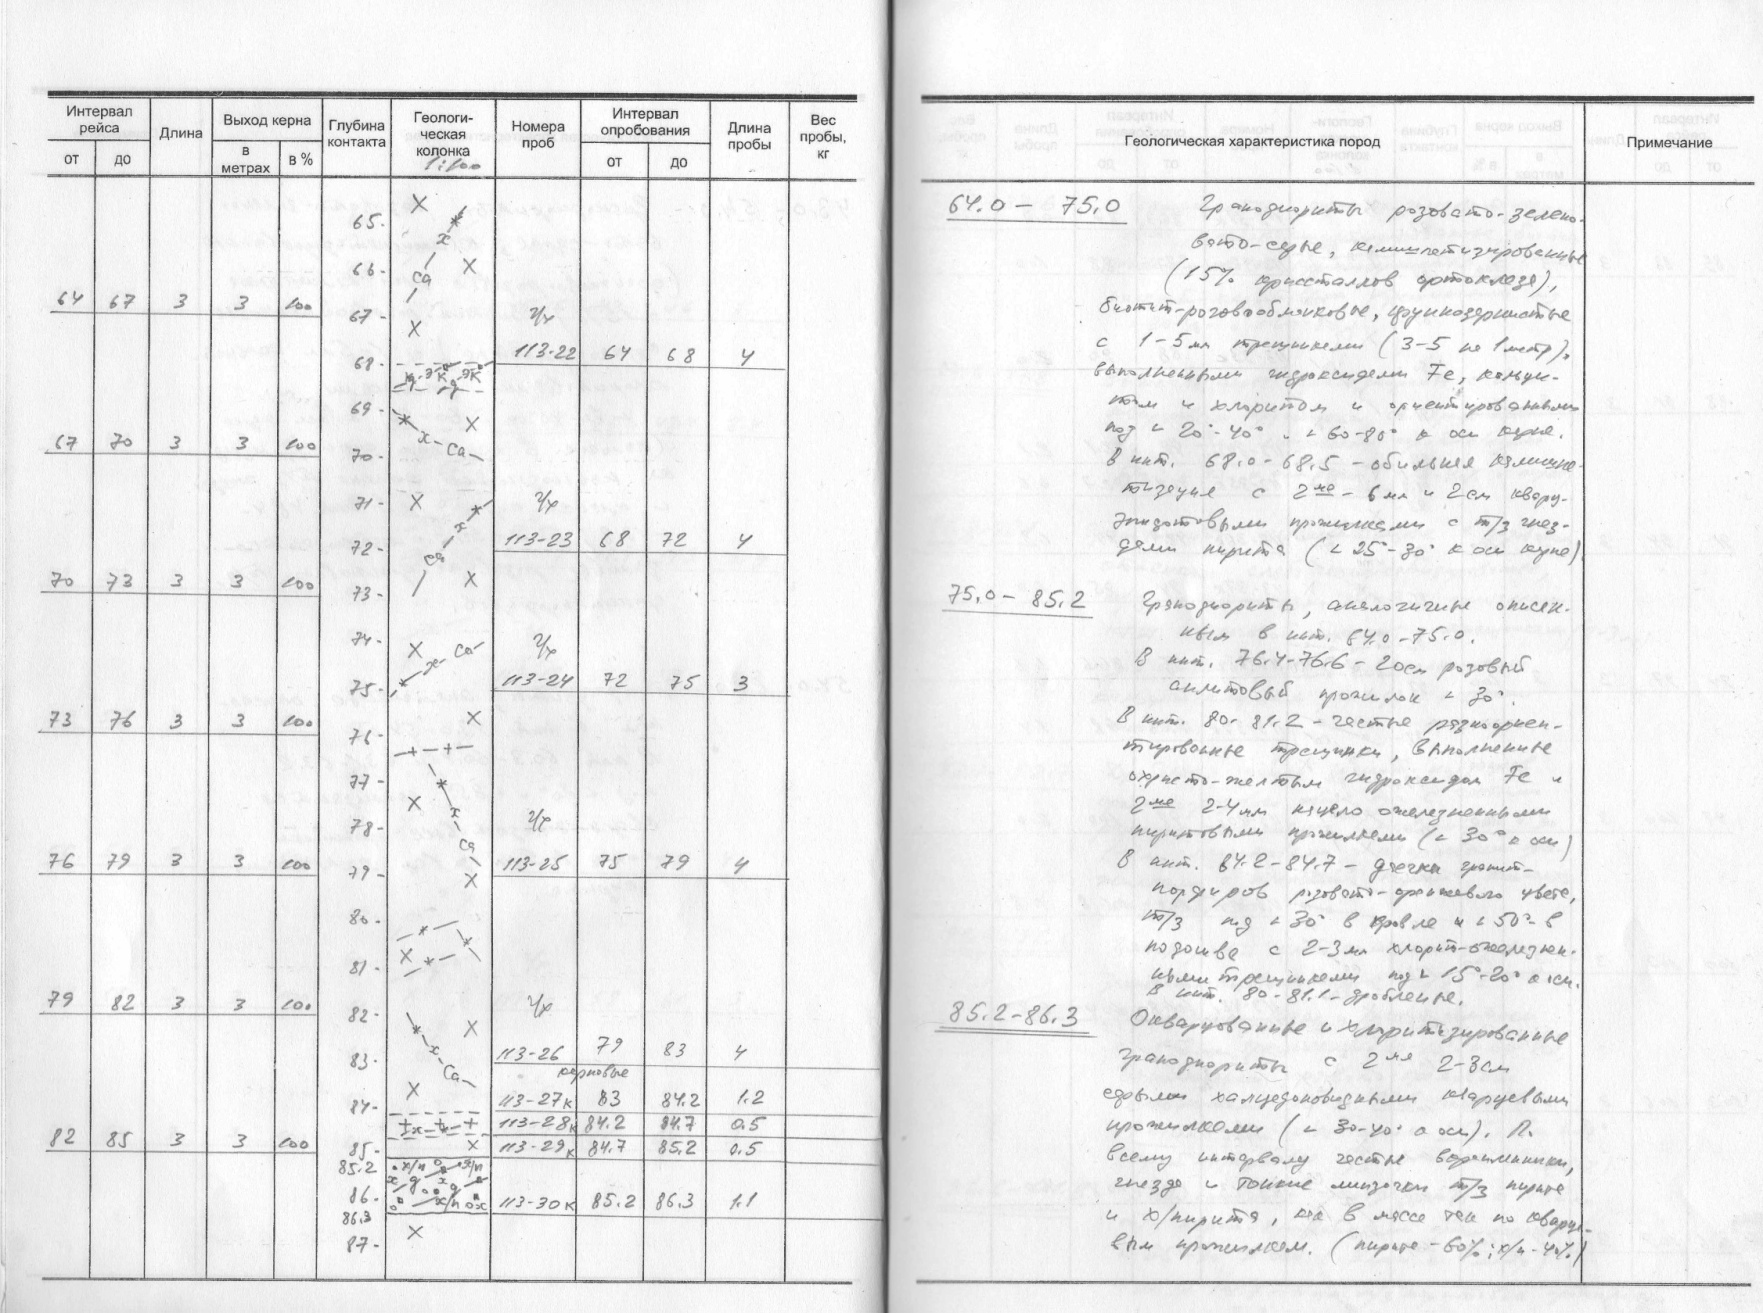 Интервал рейса
Длина
Выход керна
Глубина контакта
Геологи-
ческая
колонка
1:100
Номера проб
Интервал опробования
Длина пробы
Вес пробы, кг
от до в метрах в % от до
65-
66-
64 67 3 3 100 67- ч/х
68- 113-22 64 68 4
69-
67 70 3 3 100 70-
71- ч/х
72- 113-23 68 72 4
70 73 3 3 100 73-
74- ч/х
75- 113-24 72 75 3
73 76 3 3 100 76-
77-
78- ч/х
76 79 3 3 100 79- 113-25 75 79 4
80-
81-
79 82 3 3 100 82- ч/х
83- 113-26 79 83 4
керновые
84- 113-27к 83 84.2 1.2
113-28к 84.2 84.7 0.5
82 85 3 3 100 85- 113-29к 84.7 85.2 0.5
85.2
86- 113-30к 85.2 86.3 1.1
86.3
87-
Геологическая характеристика пород
Примечание
64.0 - 75.0 Гранодиориты розовато-зелено-
вато-серые, калишпатизированные
(15% кристаллов ортоклаза),
биотит-роговообманковые, крупнозернистые
с 1-5мм трещинками (3-5 на 1 метр),
выполненными гидроксидами Fe, кальци-
том и хлоритом и ориентированными
под ∟ 20°-40° и ∟ 60-80° к оси керна.
В инт. 68.0-68.5 - обильная калишпа-
тизация с 2мя - 6мм и 2см кварц-
эпидотовыми прожилками с т/з гнез-
дами пирита (∟ 25°-30° к оси керна)
75.0 - 85.2 Гранодиориты, аналогичные описан-
ным в инт. 64.0-75.0.
В инт. 76.4-76.6 - 20см розовый
аплитовый прожилок ∟ 30°.
В инт. 80-81.2 - частые разноориен-
тированные трещинки, выполненные
охристо-желтым гидроксидом Fe и
2мя 2-4мм нацело ожелезненными
пиритовыми прожилками (∟ 30° к оси)
В инт. 84.2-84.7 - дайка гранит-
порфиров розовато-оранжевого цвета,
т/з под ∟ 30° в кровле и ∟ 50° в
подошве с 2-3мм хлорит-ожелезнен-
ными трещинками под ∟ 15°-20° к оси.
В инт. 80-81.1 - дробление.
85.2-86.3 Окварцованные и хлоритизированные
гранодиориты с 2мя 2-3см
серыми халцедоновидными кварцевыми
прожилками (∟ 30-40° к оси). По
всему интервалу частые вкрапленники,
гнезда и тонкие линзочки т/з пирита
и х/пирита, как в массе так по кварце-
вым прожилкам. (пирит-60%; х/п-40%)